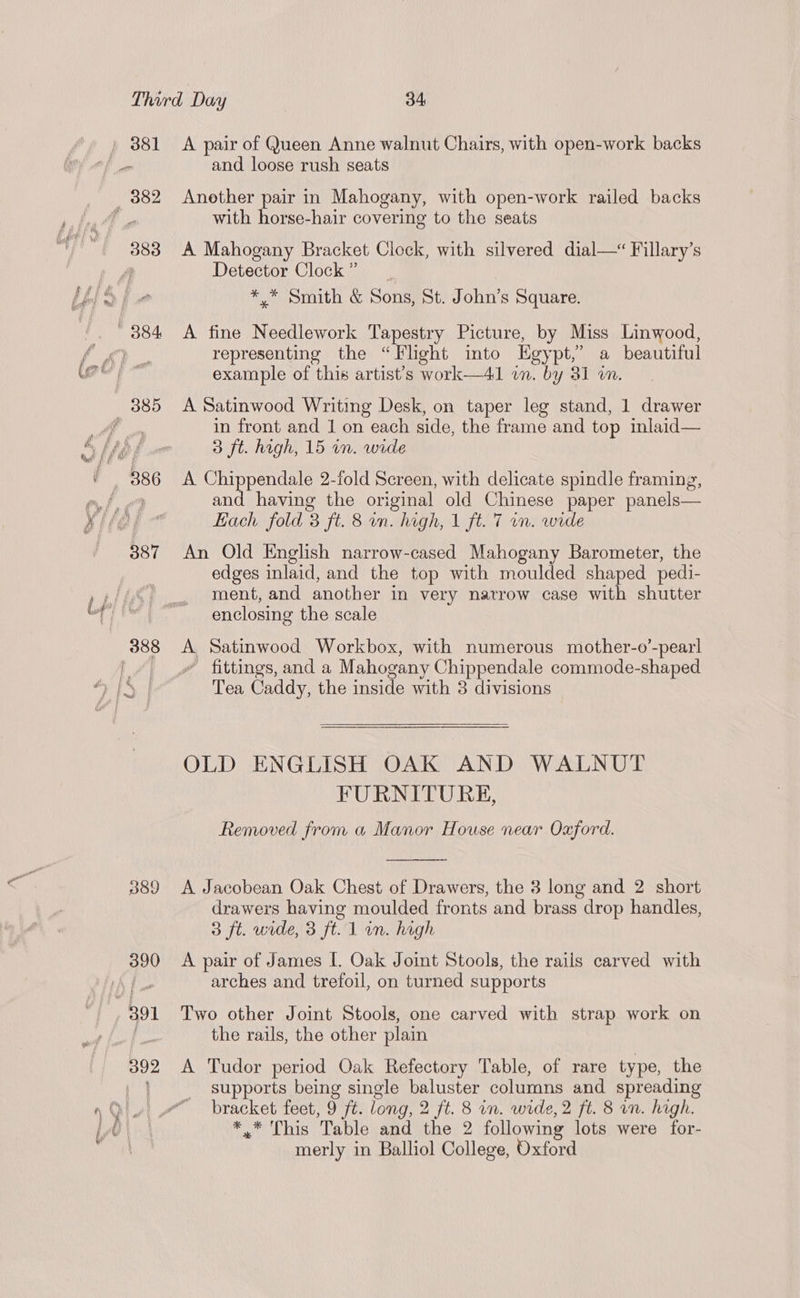 Third Day 34
381 A pair of Queen Anne walnut Chairs, with open-work backs
and loose rush seats
382 Another pair in Mahogany, with open-work railed backs
with horse-hair covering to the seats
383 A Mahogany Bracket Clock, with silvered dial—“ Fillary’s
Detector Clock ”
*⁎* Smith & Sons, St. John’s Square.
384 A fine Needlework Tapestry Picture, by Miss Linwood,
representing the “Flight into Egypt,” a beautiful
example of this artist’s work—41 in. by 31 in.
385 A Satinwood Writing Desk, on taper leg stand, 1 drawer
in front and 1 on each side, the frame and top inlaid—
3 ft. high, 15 in. wide
386 A Chippendale 2-fold Screen, with delicate spindle framing,
and having the original old Chinese paper panels—
Each fold 3 ft. 8 in. high, 1 ft. 7 in. wide
387 An Old English narrow-cased Mahogany Barometer, the
edges inlaid, and the top with moulded shaped pedi-
ment, and another in very narrow case with shutter
enclosing the scale
388 A Satinwood Workbox, with numerous mother-o’-pearl
fittings, and a Mahogany Chippendale commode-shaped
Tea Caddy, the inside with 3 divisions
OLD ENGLISH OAK AND WALNUT
FURNITURE,
Removed from a Manor House near Oxford.
389 A Jacobean Oak Chest of Drawers, the 3 long and 2 short
drawers having moulded fronts and brass drop handles,
3 ft. wide, 3 ft. 1 in. high
390 A pair of James I. Oak Joint Stools, the rails carved with
arches and trefoil, on turned supports
391 Two other Joint Stools, one carved with strap work on
the rails, the other plain
392 A Tudor period Oak Refectory Table, of rare type, the
supports being single baluster columns and spreading
bracket feet, 9 ft. long, 2 ft. 8 in. wide, 2 ft. 8 in. high.
*⁎* This Table and the 2 following lots were for-
merly in Balliol College, Oxford